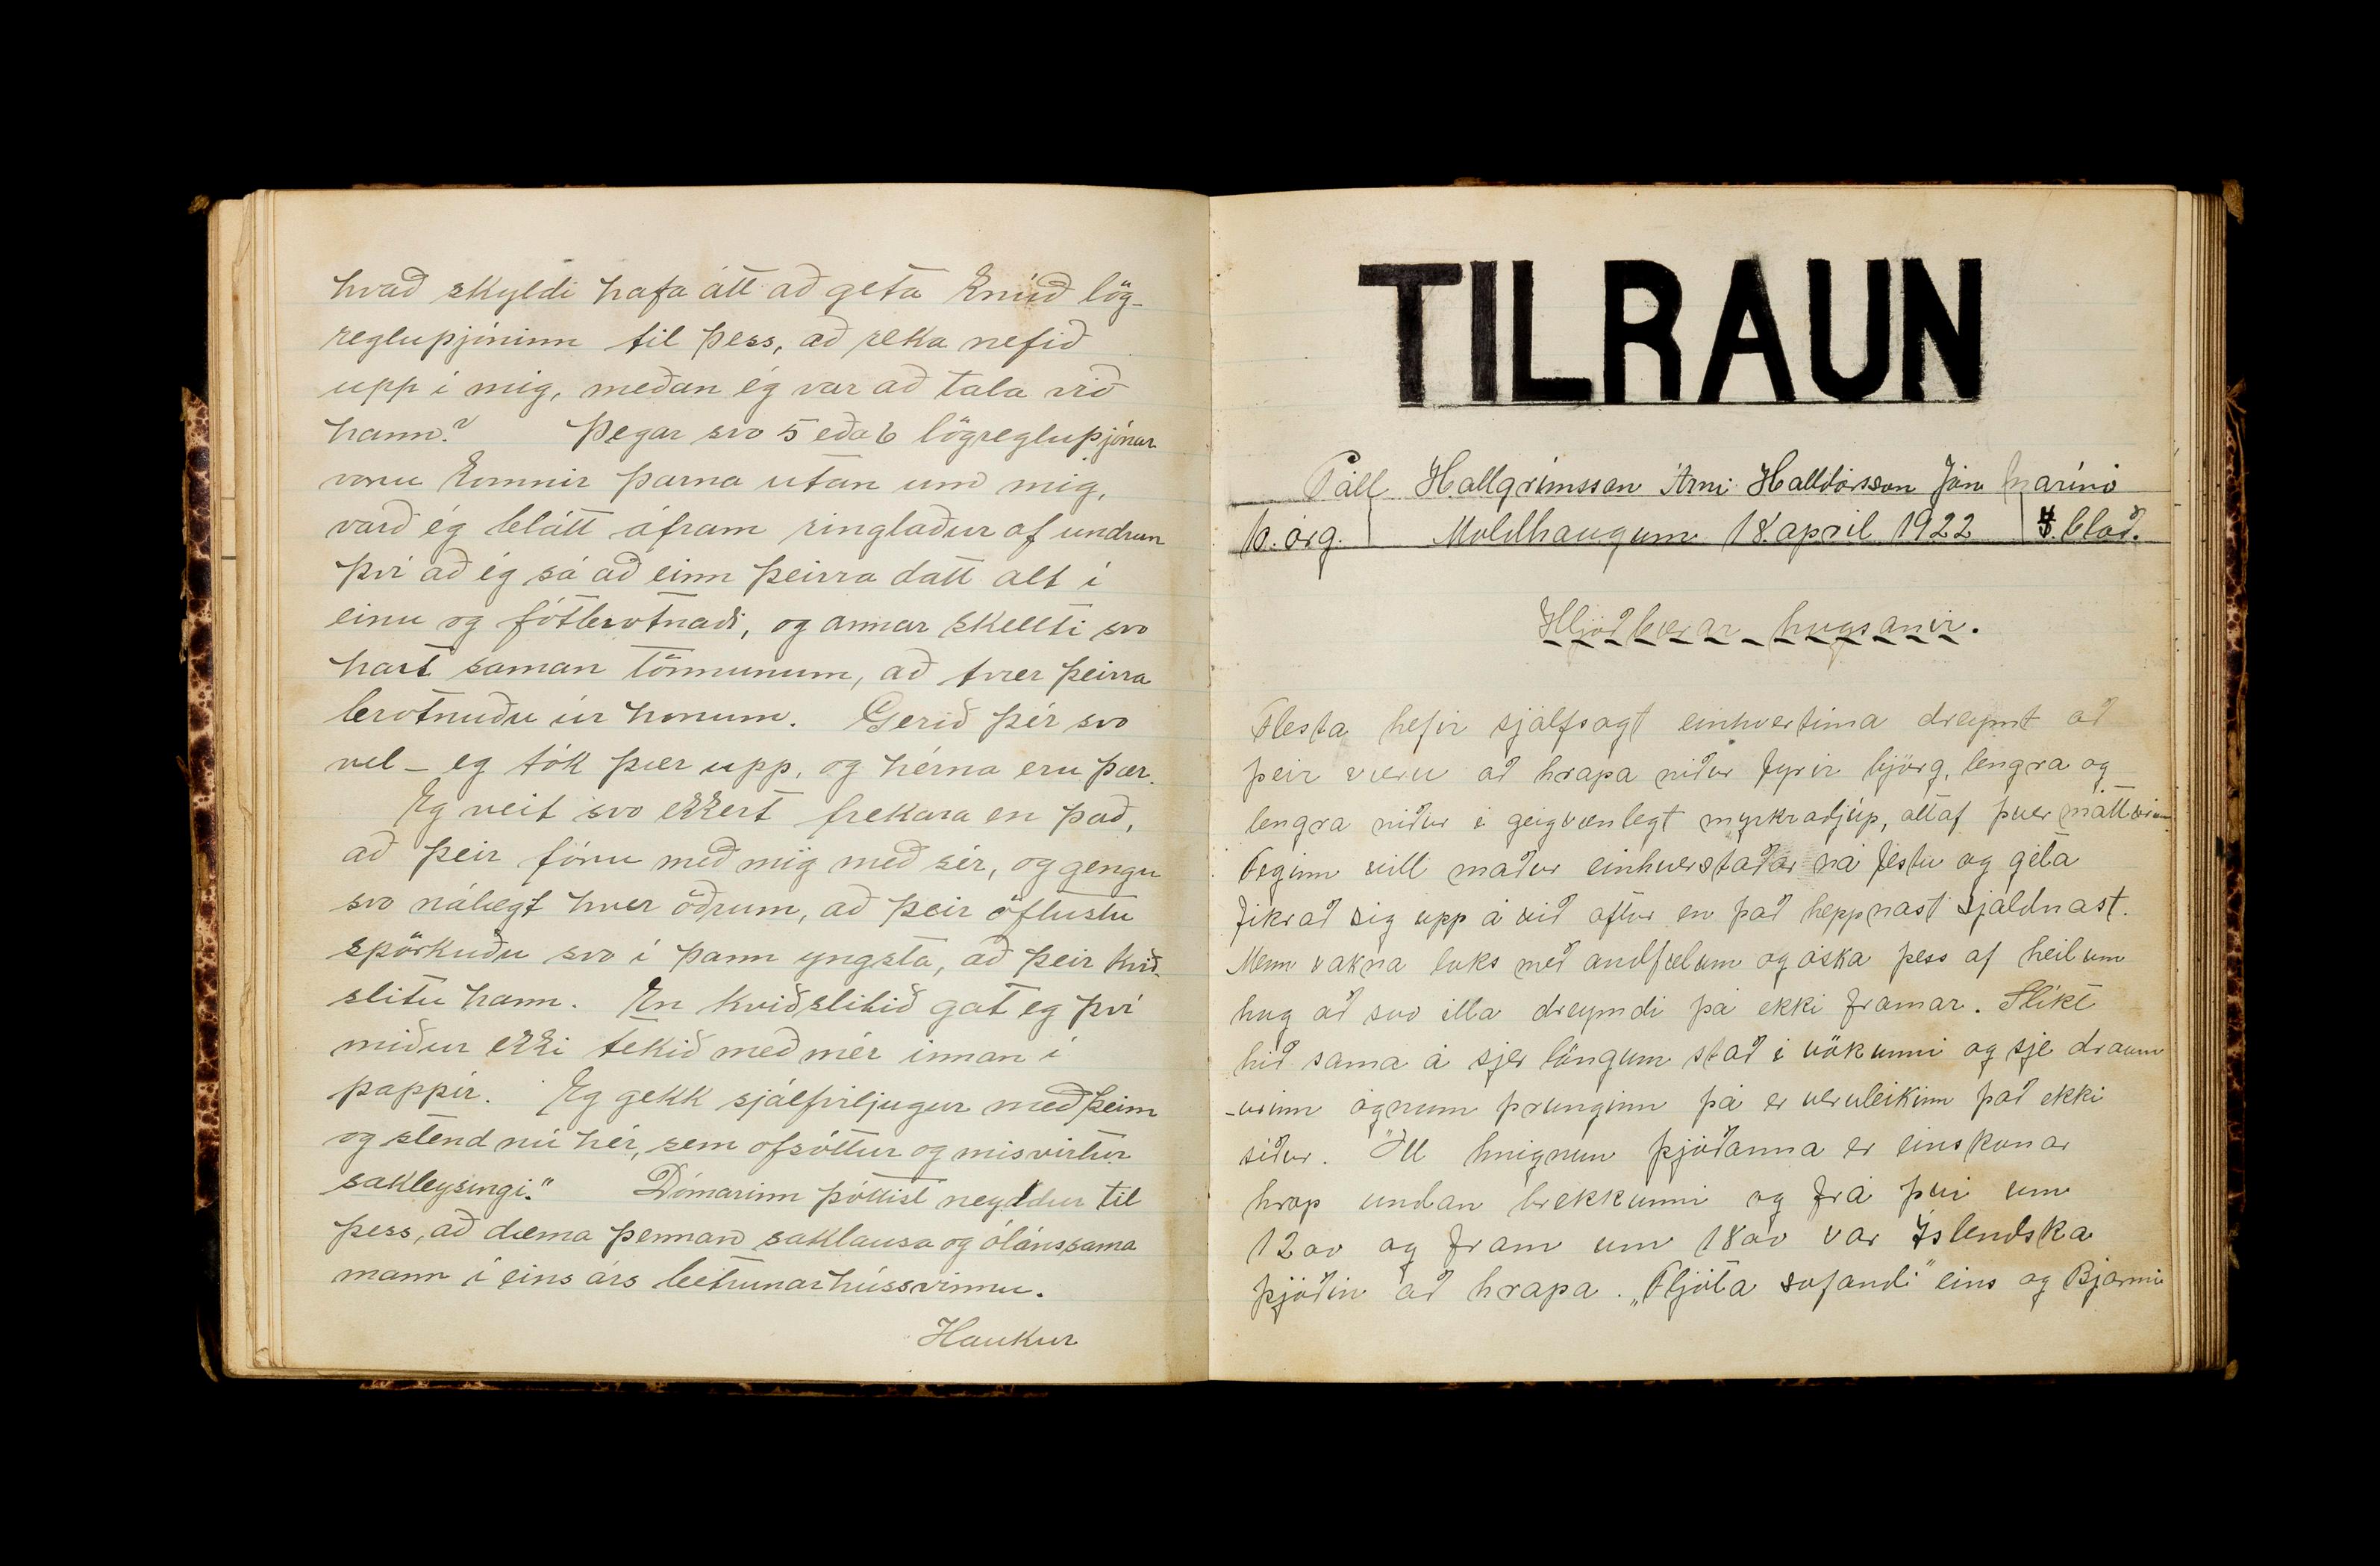 hvað skyldi hafa átt að geta knúð lög-
regluþjóninn til þess, að reka nefið
upp í mig, meðan ég var að tala við
hann? Þegar svo 5 eða 6 lögregluþjónar
voru komnir þarna utan um mig,
varð ég blátt áfram ringlaður af undrun
því að ég sá að einn þeirra datt alt í
einu og fótbrotnaði, og annar skellti svo
hart saman tönnunum, að tvær þeirra
brotnuðu úr honum. Gerið þér svo
vel - eg tók þær upp, og hérna eru þær.
Eg veit svo ekkert frekara en það,
að þeir fóru með mig með sér, og gengu
svo nálægt hver öðrum, að þeir öflustu
spörkuðu svo í þann yngsta, að þeir kvið-
slitu hann. En kviðslitið gat eg því
miður ekki tekið með mér innan í
pappír. Eg gekk sjálfviljugur með þeim
og stend nú hér, sem ofsóttur og misvirtur
sakleysingi." Dómarinn þóttist neyddur til
þess, að dæma þennan saklausa og ólánssama
mann í eins árs betrunarhússvinnu.
Haukur
TILRAUN
Páll Hallgrímsson Árni Halldórsson Jón Marinó
10. árg. Moldhaugum 18. apríl 1922 4. blað.
Hljóðbærar hugsanir.
Flesta hefir sjálfsagt einhvertima dreymt að
þeir væru að hrapa niður fyrir björg, lengra og
lengra niður í geigvænlegt myrkradjúp, altaf þver máttur
Feginn vill maður einhverstaðar ná festu og geta
fikrað sig upp á við aftur en það heppnast sjaldnast.
Menn vakna loks með andfælum og óska þess af heilum
hug að svo illa dreymdi þá ekki framar. Slíkt
hið sama á sjer löngum stað í vökunni og sje draum
-urinn ógnum þrunginn þá er veruleikinn það ekki
síður. Öll hnignun þjóðanna er einskonar
hrap undan brekkunni og frá því um
1200 og fram um 1800 var Íslendska
þjóðin að hrapa. „Fljóta sofandi" eins og Bjarni